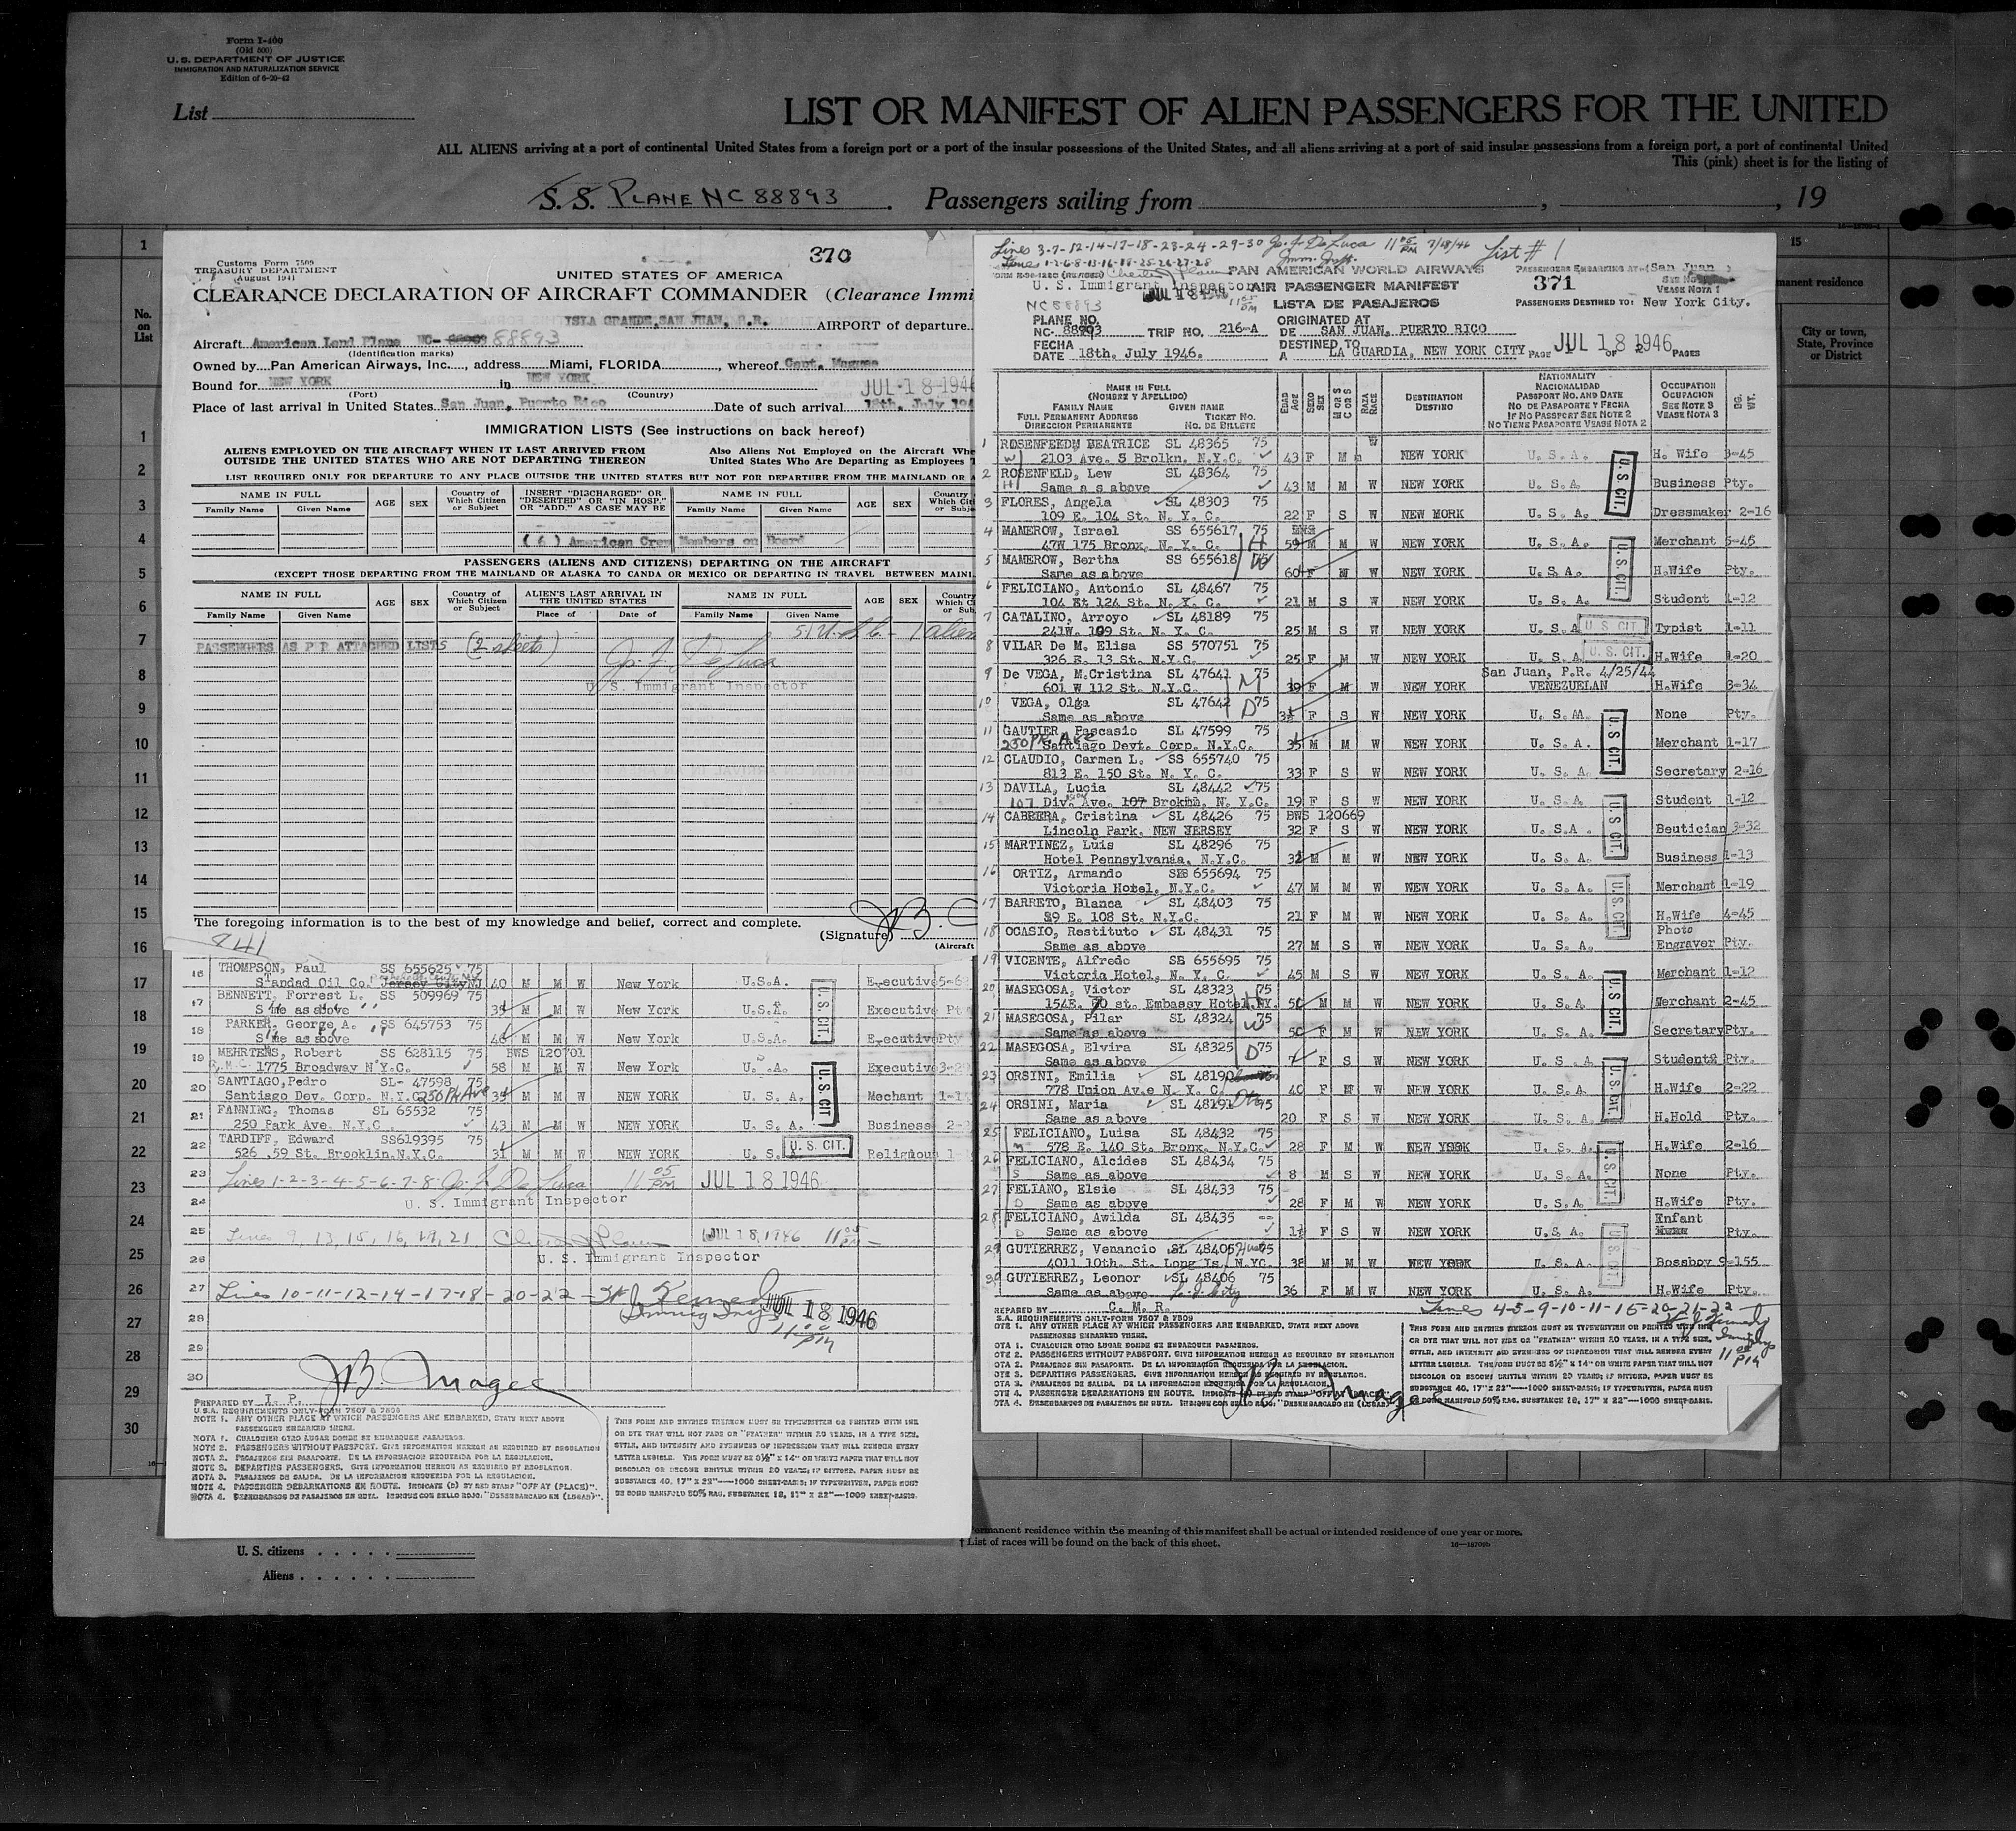 Form I-400
(Old 500)
U. S. DEPARTMENT OF JUSTICE
IMMIGRATION AND NATURALIZATION SERVICE
Edition of 6-20-42
List
LIST OR MANIFEST OF ALIEN PASSENGERS FOR THE UNITED
ALL ALIENS arriving at a port of continental United States from a foreign port or a port of the insular possessions of the United States, and all aliens arriving at a port of said insular possessions from a foreign port, a port of continental United
This (pink) sheet is for the listing of
S. S. PLANE NC 88893 . Passengers sailing from , , 19
No. on List
1
2
3
4
5
6
7
8
9
10
11
12
13
14
15
16
17
18
19
20
21
22
23
24
25
26
27
28
29
30
15
manent residence
City or town, State, Province or District
370
Customs Form 7509
TREASURY DEPARTMENT
August 1941
UNITED STATES OF AMERICA
CLEARANCE DECLARATION OF AIRCRAFT COMMANDER (Clearance Immi
ISLA GRANDE, SAN JUAN, P.R. AIRPORT of departure
Aircraft American Land Plane NC- 88893
(Identification marks)
Owned by Pan American Airways, Inc., address Miami, FLORIDA, whereof Capt. Magee
JUL 18 1946
Bound for NEW YORK in NEW YORK
(Port) (Country)
Place of last arrival in United States San Juan, Puerto Rico Date of such arrival 18th. July 194
IMMIGRATION LISTS (See instructions on back hereof)
ALIENS EMPLOYED ON THE AIRCRAFT WHEN IT LAST ARRIVED FROM
OUTSIDE THE UNITED STATES WHO ARE NOT DEPARTING THEREON
Also Aliens Not Employed on the Aircraft Whe
United States Who Are Departing as Employees T
LIST REQUIRED ONLY FOR DEPARTURE TO ANY PLACE OUTSIDE THE UNITED STATES BUT NOT FOR DEPARTURE FROM THE MAINLAND OR A
NAME IN FULL AGE SEX Country of Which Citizen or Subject INSERT "DISCHARGED" OR "DESERTED" OR "IN HOSP." OR "ADD." AS CASE MAY BE NAME IN FULL AGE SEX Country
Family Name Given Name Family Name Given Name
( 6 ) American Crew Members on Board
PASSENGERS (ALIENS AND CITIZENS) DEPARTING ON THE AIRCRAFT
(EXCEPT THOSE DEPARTING FROM THE MAINLAND OR ALASKA TO CANDA OR MEXICO OR DEPARTING IN TRAVEL BETWEEN MAINL
NAME IN FULL AGE SEX Country of Which Citizen or Subject ALIEN'S LAST ARRIVAL IN THE UNITED STATES NAME IN FULL AGE SEX
Family Name Given Name Place of Date of Family Name Given Name
PASSENGERS AS PER ATTACHED LISTS (2 sheets)
Jo. F. De Luca
U. S. Immigrant Inspector
The foregoing information is to the best of my knowledge and belief, correct and complete.
(Signature)
(Aircraft
841
16 THOMPSON, Paul SS 655625 75
Standad Oil Co. 40 M M W New York U.S.A. Executive 5-6
17 BENNETT, Forrest L. SS 509969 75
Same as above M M W New York U.S.A. Executive Pt
18 PARKER, George A. SS 645753 75
Same as above M M W New York U.S.A. Executive Pty
19 MEHRTENS, Robert SS 628115 75 BWS 120701
1775 Broadway N.Y.C. 58 M M W New York U. S. A. Executive
20 SANTIAGO, Pedro SL- 47598 75
Santiago Dev. Corp. N.Y.C. 250 Pk Ave M M W NEW YORK U. S. A. Mechant
21 FANNING, Thomas SL 65532 75
250 Park Ave. N.Y.C. 43 M M W NEW YORK U. S. A. Business
22 TARDIFF, Edward SS619395 75
526 .59 St. Brooklin.N.Y.C. 31 M M W NEW YORK U. S. Religious
U. S. CIT.
U. S. CIT
U. S. CIT.
23 Lines 1-2-3-4-5-6-7-8- Jo. F. De Luca 11 05 PM JUL 18 1946
24 U. S. Immigrant Inspector
25 Lines 9, 13, 15, 16, 19, 21 JUL 18 1946 11 05 PM
26 U. S. Immigrant Inspector
27 Lines 10-11-12-14-17-18-20-22- Kennedy
28 JUL 18 1946
29
30 JB. Magee
PREPARED BY I. P.
U.S.A. REQUIREMENTS ONLY-FORM 7507 & 7509
NOTE 1. ANY OTHER PLACE AT WHICH PASSENGERS ARE EMBARKED, STATE NEXT ABOVE
PASSENGERS EMBARKED THERE.
NOTA 1. CUALQUIER OTRO LUGAR DONDE SE EMBARQUEN PASAJEROS.
NOTE 2. PASSENGERS WITHOUT PASSPORT. GIVE INFORMATION HEREON AS REQUIRED BY REGULATION
NOTA 2. PASAJEROS SIN PASAPORTE. DE LA INFORMACION REQUERIDA POR LA REGULACION.
NOTE 3. DEPARTING PASSENGERS. GIVE INFORMATION HEREON AS REQUIRED BY REGULATION.
NOTA 3. PASAJEROS DE SALIDA. DE LA INFORMACION REQUERIDA POR LA REGULACION.
NOTE 4. PASSENGER DEBARKATIONS EN ROUTE. INDICATE (D) BY RED STAMP "OFF AT (PLACE)".
NOTA 4. DESEMBARCOS DE PASAJEROS EN RUTA. INDIQUE CON SELLO ROJO: "DESEMBARCADO EN (LUGAR)".
THIS FORM AND ENTRIES THEREON MUST BE TYPEWRITTEN OR PRINTED WITH INK
OR DYE THAT WILL NOT FADE OR "FEATHER" WITHIN 20 YEARS, IN A TYPE SIZE,
STYLE, AND INTENSITY AND EVENNESS OF IMPRESSION THAT WILL RENDER EVERY
LETTER LEGIBLE. THE FORM MUST BE 8½" X 14" ON WHITE PAPER THAT WILL NOT
DISCOLOR OR BECOME BRITTLE WITHIN 20 YEARS; IF DITTOED, PAPER MUST BE
SUBSTANCE 40, 17" X 22"—1000 SHEET-BASIS; IF TYPEWRITTEN, PAPER MUST
BE BOND MANIFOLD 50% RAG, SUBSTANCE 18, 17" X 22"—1000 SHEET-BASIS.
Lines 3-7-12-14-17-18-23-24-29-30 Jo. F. De Luca 11 05 PM 7/18/46 List # 1
PAN AMERICAN WORLD AIRWAYS
U. S. Immigrant Inspector AIR PASSENGER MANIFEST
LISTA DE PASAJEROS
371
PASSENGERS EMBARKING AT: San Juan
VEASE NOTA 1
PASSENGERS DESTINED TO: New York City.
NC 88893
PLANE NO.
NC- 88903 TRIP NO. 216-A
FECHA
DATE 18th. July 1946.
ORIGINATED AT
DE SAN JUAN, PUERTO RICO
DESTINED TO
A LA GUARDIA, NEW YORK CITY PAGE 1 OF 2 PAGES
JUL 18 1946
NAME IN FULL
(NOMBRE Y APELLIDO)
FAMILY NAME GIVEN NAME
FULL PERMANENT ADDRESS TICKET NO.
DIRECCION PERMANENTE NO. DE BILLETE
EDAD AGE SEXO SEX M OR S C OR S RAZA RACE DESTINATION DESTINO
NATIONALITY
NACIONALIDAD
PASSPORT NO. AND DATE
NO DE PASAPORTE Y FECHA
IF NO PASSPORT SEE NOTE 2
NO TIENE PASAPORTE VEASE NOTA 2
OCCUPATION
OCUPACION
SEE NOTE 3
VEASE NOTA 3
BG. WT.
1 ROSENFEEDM BEATRICE SL 48365 75
2103 Ave. S Brolkn. N.Y.C. 43 F M NEW YORK U. S. A. H. Wife 3-45
2 ROSENFELD, Lew SL 48364 75
Same a s above 43 M M W NEW YORK U. S. A. Business Pty.
3 FLORES, Angela SL 48303 75
109 E. 104 St. N. Y. C. 22 F S W NEW YORK U. S. A. Dressmaker 2-16
4 MAMEROW, Israel SS 655617 75
47W 175 Bronx. N. Y. C. 59 M M W NEW YORK U. S. A. Merchant 5-45
5 MAMEROW, Bertha SS 655618
Same as above 60 F M W NEW YORK U. S. A. H.Wife Pty.
6 FELICIANO, Antonio SL 48467 75
104 Et 124 St. N. Y. C. 21 M S W NEW YORK U. S. A. Student 1-12
7 CATALINO, Arroyo SL 48189 75
241W. 109 St. N. Y. C. 25 M S W NEW YORK U. S. A U. S. CIT. Typist 1-11
8 VILAR De M. Elisa SS 570751 75
326 E. 13 St. N.Y.C. 25 F M W NEW YORK U. S. A U. S. CIT. H.Wife 1-20
9 De VEGA, M.Cristina SL 47641 75 San Juan, P.R. 4/25/44
601 W 112 St. N.Y.C. M 39 F M W NEW YORK VENEZUELAN H.Wife 3-34
10 VEGA, Olga SL 47642 75
Same as above D F S W NEW YORK U. S. A. None Pty.
11 GAUTIER, Pascasio SL 47599 75
250 Pk Ave Santiago Devt. Corp. N.Y.C. 35 M M W NEW YORK U. S. A. Merchant 1-17
12 CLAUDIO, Carmen L. SS 655740 75
813 E. 150 St. N. Y. C. 33 F S W NEW YORK U. S. A. Secretary 2-16
13 DAVILA, Lucia SL 48442 75
107 Div. Ave. 107 Brokhn, N. Y.C. 19 F S W NEW YORK U. S. A. Student 1-12
14 CABRERA, Cristina SL 48426 75 BWS 120669
Lincoln Park. NEW JERSEY 32 F S W NEW YORK U. S.A . Beutician 3-32
15 MARTINEZ, Luis SL 48296 75
Hotel Pennsylvania, N.Y.C. 32 M M W NEW YORK U. S. A. Business 1-13
16 ORTIZ, Armando SS 655694 75
Victoria Hotel, N.Y.C. 47 M M W NEW YORK U. S. A. Merchant 1-19
17 BARRETO, Blanca SL 48403 75
E. 108 St. N.Y.C. 21 F M W NEW YORK U. S. A. H.Wife 4-45
18 OCASIO, Restituto SL 48431 75 Photo
Same as above 27 M S W NEW YORK U. S. A. Engraver Pty.
19 VICENTE, Alfredo SS 655695 75
Victoria Hotel, N. Y. C. 45 M S W NEW YORK U. S. A. Merchant 1-12
20 MASEGOSA, Victor SL 48323 75
154E. 70 st. Embassy Hotel.NY. M M W NEW YORK U. S. A Merchant 2-45
21 MASEGOSA, Pilar SL 48324 75
Same as above W 50 F M W NEW YORK U. S. A. Secretary Pty.
22 MASEGOSA, Elvira SL 48325 75
Same as above D 7 F S W NEW YORK U. S. A. Student Pty.
23 ORSINI, Emilia SL 48190
778 Union Av.e N. Y. C. 40 F W NEW YORK U. S. A. H.Wife 2-22
24 ORSINI, Maria SL 48191 75
Same as above 20 F S W NEW YORK U. S. A. H.Hold Pty.
25 FELICIANO, Luisa SL 48432 75
578 E. 140 St. Bronx. N.Y.C. 28 F M W NEW YORK U. S. A. H.Wife 2-16
26 FELICIANO, Alcides SL 48434 75
S Same as above 8 M S W NEW YORK U. S. A. None Pty.
27 FELIANO, Elsie SL 48433 75
D Same as above 28 F M W NEW YORK U. S. A. H.Wife Pty.
28 FELICIANO, Awilda SL 48435 == Enfant
D Same as above 1½ F S W NEW YORK U.S. A. Pty.
29 GUTIERREZ, Venancio SL 48405 75
4011 10th. St. Long Is. N.YC. 38 M M W NEW YORK U. S. A. Bossboy 9-155
30 GUTIERREZ, Leonor SL 48406 75
Same as above L. I. City 36 F M W NEW YORK U. S. A. H.Wife Pty.
U. S. CIT.
U. S. CIT.
U. S. CIT.
U. S. CIT.
U. S. CIT.
U. S. CIT.
U. S. CIT.
U. S. CIT.
U. S. CIT.
REPARED BY C. M. R. Lines 4-5-9-10-11-15-20-21-22
S.A. REQUIREMENTS ONLY-FORM 7507 & 7509
OTE 1. ANY OTHER PLACE AT WHICH PASSENGERS ARE EMBARKED, STATE NEXT ABOVE
PASSENGERS EMBARKED THERE.
OTA 1. CUALQUIER OTRO LUGAR DONDE SE EMBARQUEN PASAJEROS.
OTE 2. PASSENGERS WITHOUT PASSPORT. GIVE INFORMATION HEREON AS REQUIRED BY REGULATION
OTA 2. PASAJEROS SIN PASAPORTE. DE LA INFORMACION REQUERIDA POR LA REGULACION.
OTE 3. DEPARTING PASSENGERS. GIVE INFORMATION HEREON AS REQUIRED BY REGULATION.
OTA 3. PASAJEROS DE SALIDA. DE LA INFORMACION REQUERIDA POR LA REGULACION.
OTE 4. PASSENGER DEBARKATIONS EN ROUTE. INDICATE (D) BY RED STAMP "OFF AT (PLACE)".
OTA 4. DESEMBARCOS DE PASAJEROS EN RUTA. INDIQUE CON SELLO ROJO: "DESEMBARCADO EN (LUGAR)
JB Magee
THIS FORM AND ENTRIES HEREON MUST BE TYPEWRITTEN OR PRINTED WITH INK
OR DYE THAT WILL NOT FIDE OR "FEATHER" WITHIN 20 YEARS, IN A TYPE SIZE,
STYLE, AND INTENSITY AND EVENNESS OF IMPRESSION THAT WILL RENDER EVERY
LETTER LEGIBLE. THE FORM MUST BE 8½" X 14" ON WHITE PAPER THAT WILL NOT
DISCOLOR OR BECOME BRITTLE WITHIN 20 YEARS; IF DITTOED, PAPER MUST BE
SUBSTANCE 40, 17" X 22"—1000 SHEET-BASIS; IF TYPEWRITTEN, PAPER MUST
BE BOND MANIFOLD 50% RAG, SUBSTANCE 18, 17" X 22"—1000 SHEET-BASIS.
ermanent residence within the meaning of this manifest shall be actual or intended residence of one year or more.
† List of races will be found on the back of this sheet.
U. S. citizens
Aliens